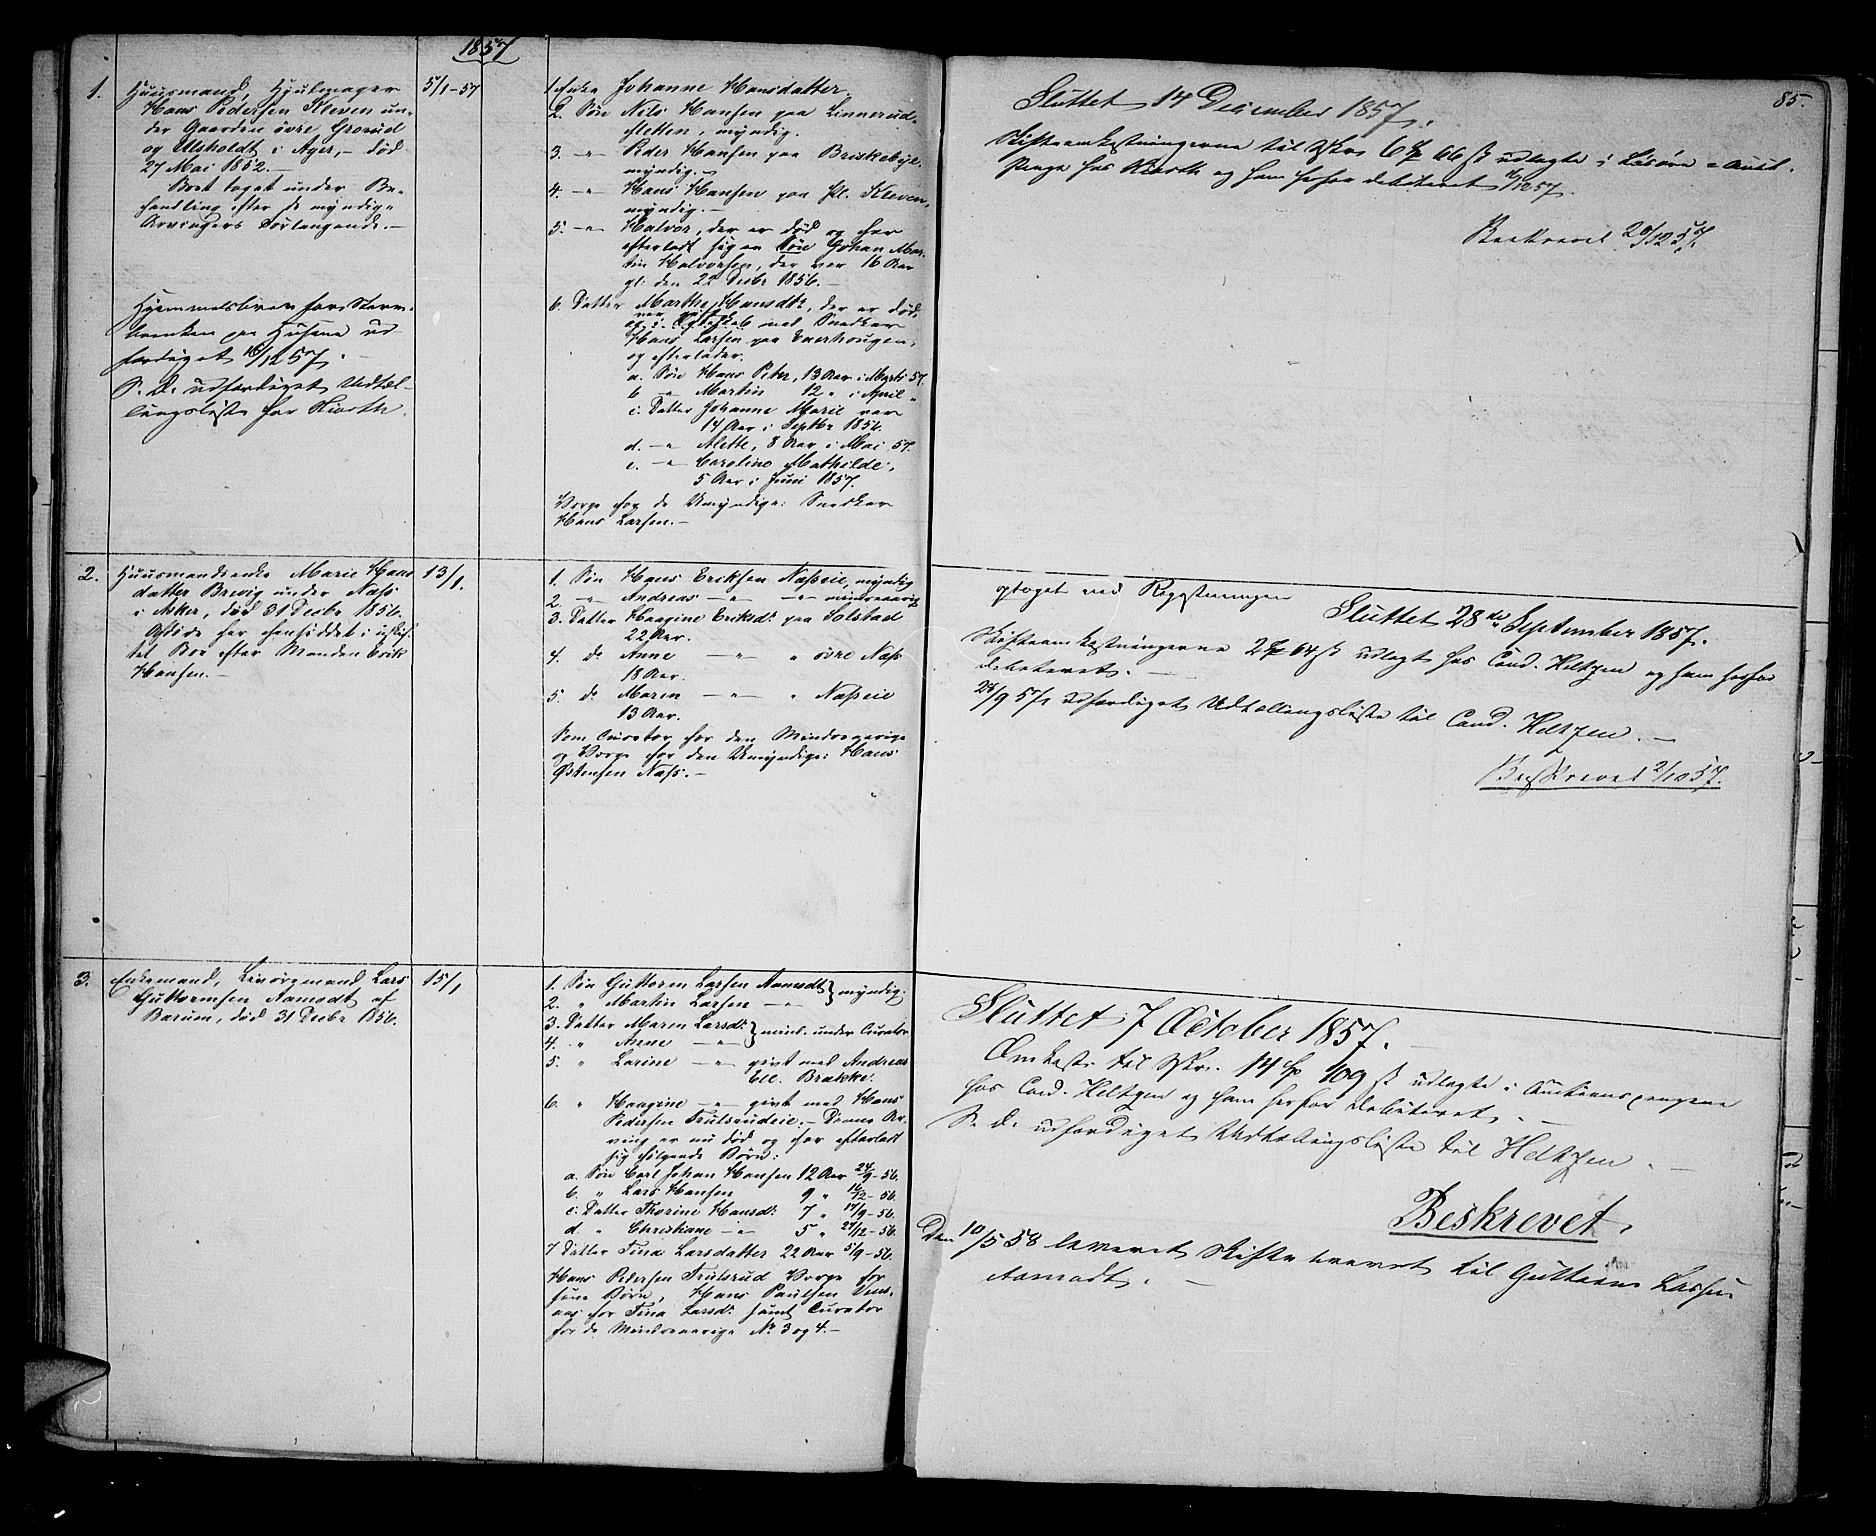 1857
1. Huusmand, Hjulmager
Hans Pedersen Kleven un-
der Gaarden övre Grorud
og Ulsholdt i Ager, - död
27 Mai 1852. -
Boet taget under Be-
handling efter de myndig-
Arvingers Forlangende. -
Hjemmelsbrev for Sterv-
paa Husene ud-
færdiget 16/12 57.
S. D. udfærdiget Udtæl-
lingsliste for Hiorth.
5/1 - 57
1 Enke Johanne Hansdatter.
2. Sön Nils Hansen paa Linnerud-
sletten, myndig.
3. -"- Peder Hansen paa Briskebye.
myndig. -
4. -"- Hans Hansen paa Pl. Kleven.
myndig. -
5. -"- Halvor, der er död og har
efterladt sig en Sön Johan Mar-
tin Halvorsen, der var 16 Aar
gl. den 22 Decbr 1856. -
6. Datter Marthe Hansdtr, der er död,
var gift
og i Ægteskab med Snedker
Hans Larsen paa Enerhougen,
og efterlader.
a. Sön Hans Peter, 13 Aar i Marts 57.
b. " Martin 12 " i April "
c. Datter Johanne Marie var
14 Aar i Septbr 1856.
d. -"- Alette, 8 Aar i Mai 57.
e. -"- Caroline Mathilde,
5 Aar i Juni 1857.
Værge for de Umyndige: Snedker
Hans Larsen. -
85.
Sluttet 14 December 1857.
Skifteomkostningerne til Skr. 6 66 ß udlagte i Lösöre = Auct.
penge hos Hiorth og ham herfor debiteret 16/12 57.
Beskrevet 20/12 57.
2. Huusmandsenke Marie Hans
datter Brevig under Næss
i Asker, död 31 Decbr 1856.
Afdöde har hensiddet i uskif-
tet Boe efter Manden Erik
Hansen. -
13/1.
1. Sön Hans Eriksen Næsseie, myndig
2. -"- Andreas -"- -"- mindreaarig
3. Datter Haagine Eriksdtr paa Solstad
22 Aar.
4. do Anne -"- " övre Næs
18 Aar.
5. do Maren -"- " Næsseie
13 Aar.
Som Curator for den Mindreaarige
og Værge for den Umyndige: Hans
Østensen Næss. -
optaget ved Registreringen
Sluttet 28de September 1857.
Skifteomkostningerne 2 64 ß udlagt hos Cand. Heltzen og ham herfor
debiteret. -
28/9 57 udfærdiget Udtællingsliste til Cand. Heltzen. -
Beskrevet 2/10 57.
3. Enkemand, Livörgmand Lars
Guttormsen Aamodt af
Bærum, död 31 Decbr 1856.
15/1
1. Sön Guttorm Larsen Aamodt } myndig.
2. " Martin Larsen -"-
3. Datter Maren Larsdtr } mind. under Curator
4. " Anne -"-
5. " Larine -"- givt med Andreas
Ell. Brække.
6. " Haagine -"- givt med Hans
Pedersen Trulsrudeie. - Denne Ar-
ving er nu död og har efterladt
sig fölgende Börn:
a. Sön Carl Johan Hansen 12 Aar 24/9 - 56.
b. " Lars Hansen 9 " 16/12 - 56.
c. Datter Thorine Hansdtr 7 " 19/9 - 56.
d. " Christiane -"- 5 " 27/12 - 56.
7 Datter Tina Larsdatter 22 Aar 5/9 - 56.
Hans Pedersen Trulsrud Værge for
sine Börn, Hans Paulsen
for Tina Larsdtr samt Curator
for de Mindreaarige No 3 og 4. -
Sluttet 7 October 1857.
Omkostn. til Skr. 14 109 ß udlagte i Auctionspengene
hos Cand. Heltzen og ham herfor debiteret. -
S. D. udfærdiget Udtællingsliste til Heltzen. -
Beskrevet.
Den 10/5 58 leveret Skiftebrevet til Guttorm Larsen
Aamodt. -